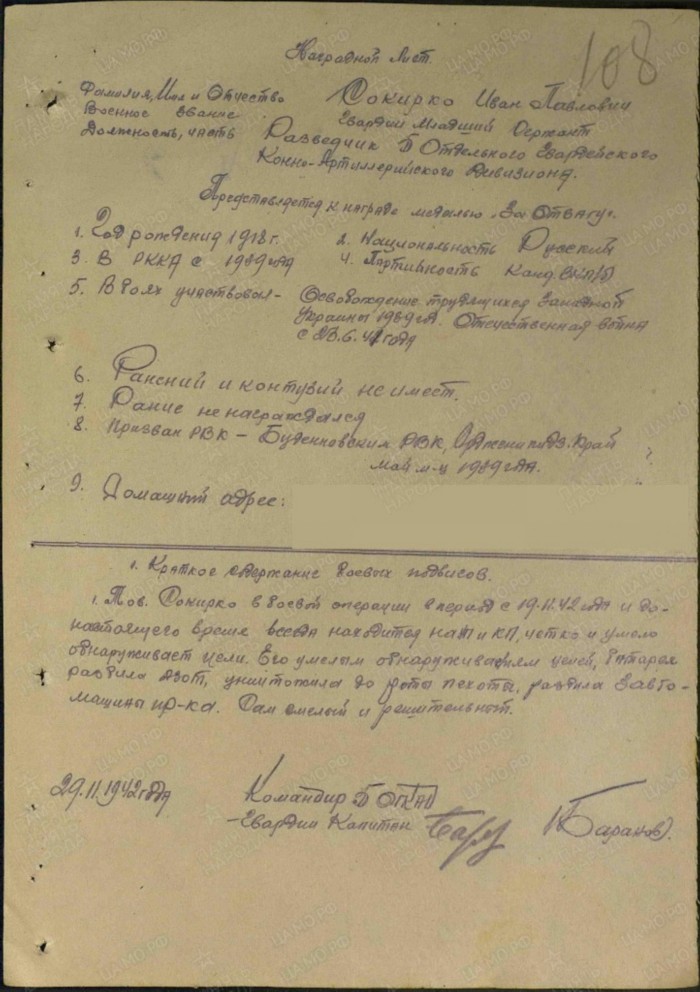 108
Наградной Лист.
Фамилия, Имя и Отчество Сокирко Иван Павлович
Военное звание Гвардии Младший Сержант
Должность, часть Разведчик 5 Отдельного Гвардейского
Конно-Артиллерийского Дивизиона.
Представляется к награде медалью „За Отвагу".
1. Год рождения 1918 г. 2. Национальность Русский
3. В РККА с 1939 года 4. Партийность Канд. ВКП(б)
5. В боях участвовал - Освобождение трудящихся Западной
Украины 1939 г. Отечественная война
с 6.41 года
6. Ранений и контузий не имеет.
7. Ранее не награждался
8. Призван РВК - Буденновским РВК, Орджоникидз. Край
май м-ц 1939 г.
9. Домашний адрес:
1. Краткое содержание боевых подвигов.
1. Тов. Сокирко в боевой операции в период с 19.11.42 года и до-
настоящего время всегда находится на КП, четко и умело
обнаруживает цели. Его умелым обнаруживаем целей, батарея
разбила ДЗОТ, уничтожила до роты пехоты, разбила 3 авто-
машины пр-ка. Сам смелый и решительный.
29.11.1942 года Командир 5 ОГКАД
-Гвардии Капитан (Баранов).